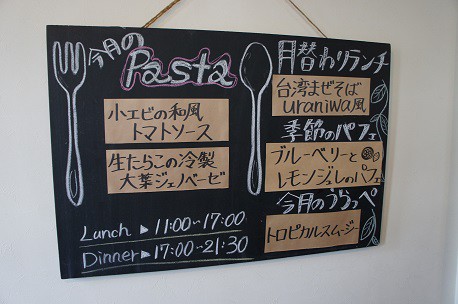 今月の
Pasta
小エビの和風
トマトソース
生たらこの冷製
大葉ジェノベーゼ
Lunch ▶ 11:00~17:00
Dinner ▶ 17:00~21:30
月替わりランチ
台湾まぜそば
uraniwa風
季節のパフェ
ブルーベリーと
レモンジュレのパフェ
今月のうらっぺ
トロピカルスムージー